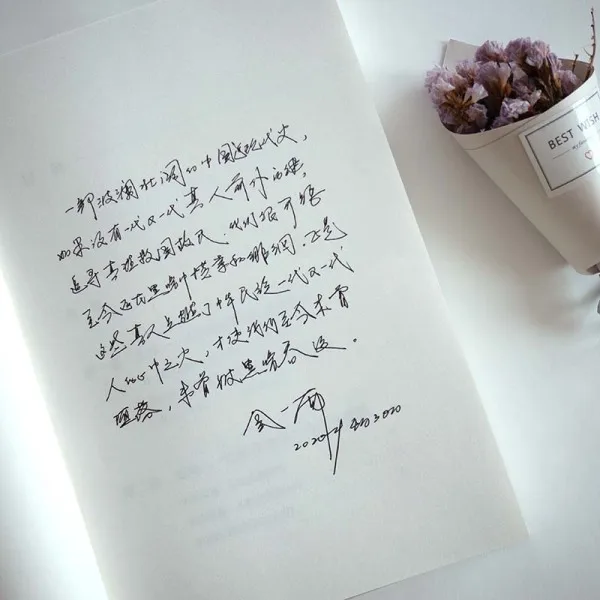 一部波澜壮阔的中国近现代史，
如果没有一代又一代真人前仆后继，
追寻真理救国救民，我们很可能
至今还在黑暗中摸索和徘徊。正是
这些真人点燃了中华民族一代又一代
人的心中之火，才使我们至今未曾
堕落，未曾被黑暗吞没。
金一南
BEST WISH